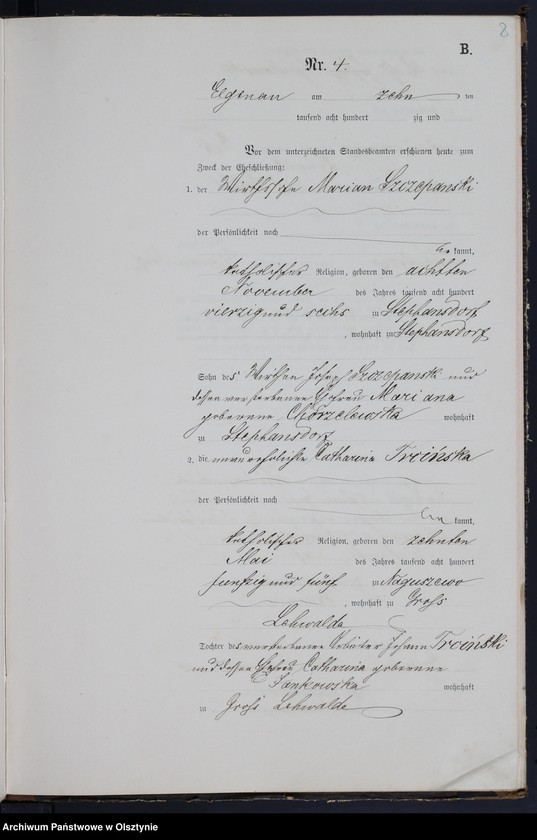 8
B.
Nr. 4.
Elgenau am zehn ten
tausend acht hundert zig und
Vor dem unterzeichneten Standesbeamten erschienen heute zum
Zweck der Eheschließung:
1. der Wirthssohn Marian Szczepanski
der Persönlichkeit nach
be kannt,
katholischer Religion, geboren den achtten
November des Jahres tausend acht hundert
vierzig und sechs zu Stephansdorf
, wohnhaft zu Stephansdorf
Sohn des Wirthen Joseph Szczepanski und
dessen verstorbenen Ehefrau Mariana
geborene Chorzelewska wohnhaft
zu Stephansdorf
2. die unverehelichte Catharina Trcińska
der Persönlichkeit nach
be kannt,
katholischer Religion, geboren den zehnten
Mai des Jahres tausend acht hundert
funfzig und fünf zu Naguszewo
, wohnhaft zu Groß
Lehwalde
Tochter des verstorbenen Johann Trciński
und dessen Ehefrau Catharina geborene
Jankowska wohnhaft
zu Groß Lehwalde
Archiwum Państwowe w Olsztynie